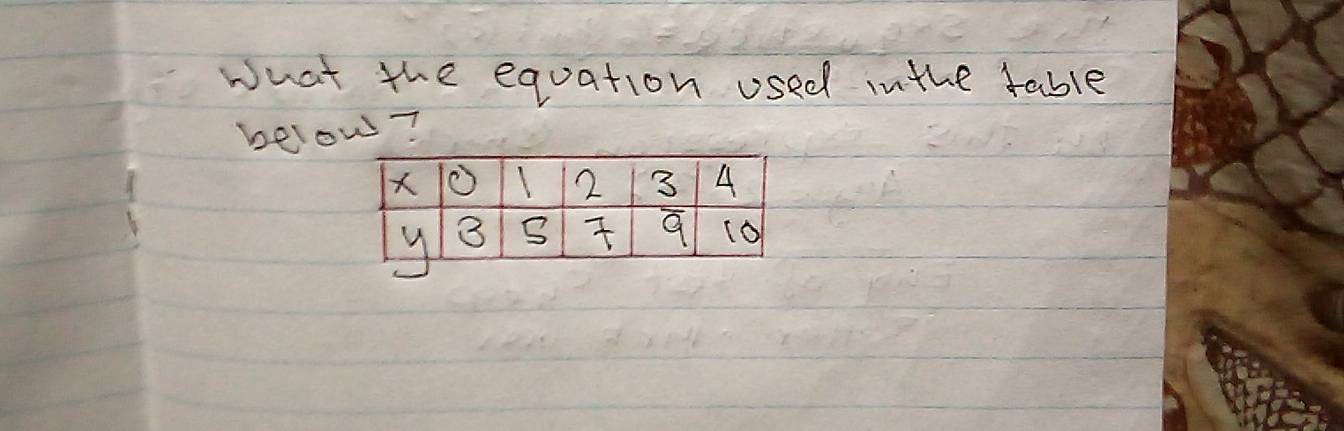 What the equation used in the table
below?
x 0 1 2 3 4
y 3 5 7 9 10